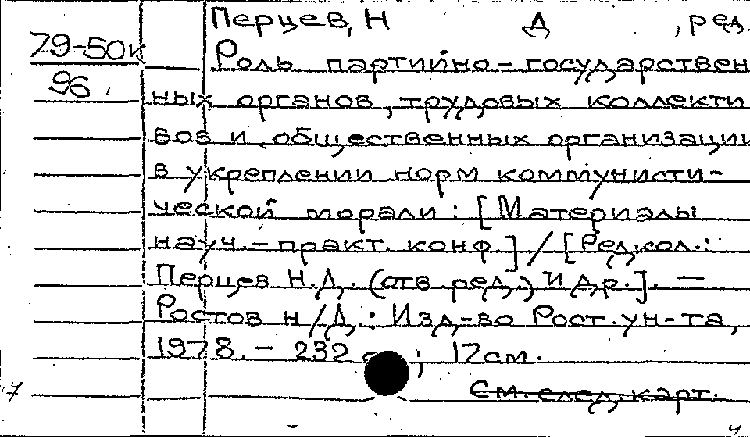 Перцев, Н Д , ред.
79-50к
96
Роль партийно-государствен
ных органов, трудовых коллекти
вов и общественных организаций
в укреплении норм коммунисти-
ческой морали: [Материалы
науч.-практ. конф.] / [Ред.кол.:
Перцев Н.Д. (отв. ред.) и др.]. —
Ростов н/Д.: Изд-во Рост. ун-та,
1978. - 232 с.; 17см.
См. след. карт.
7